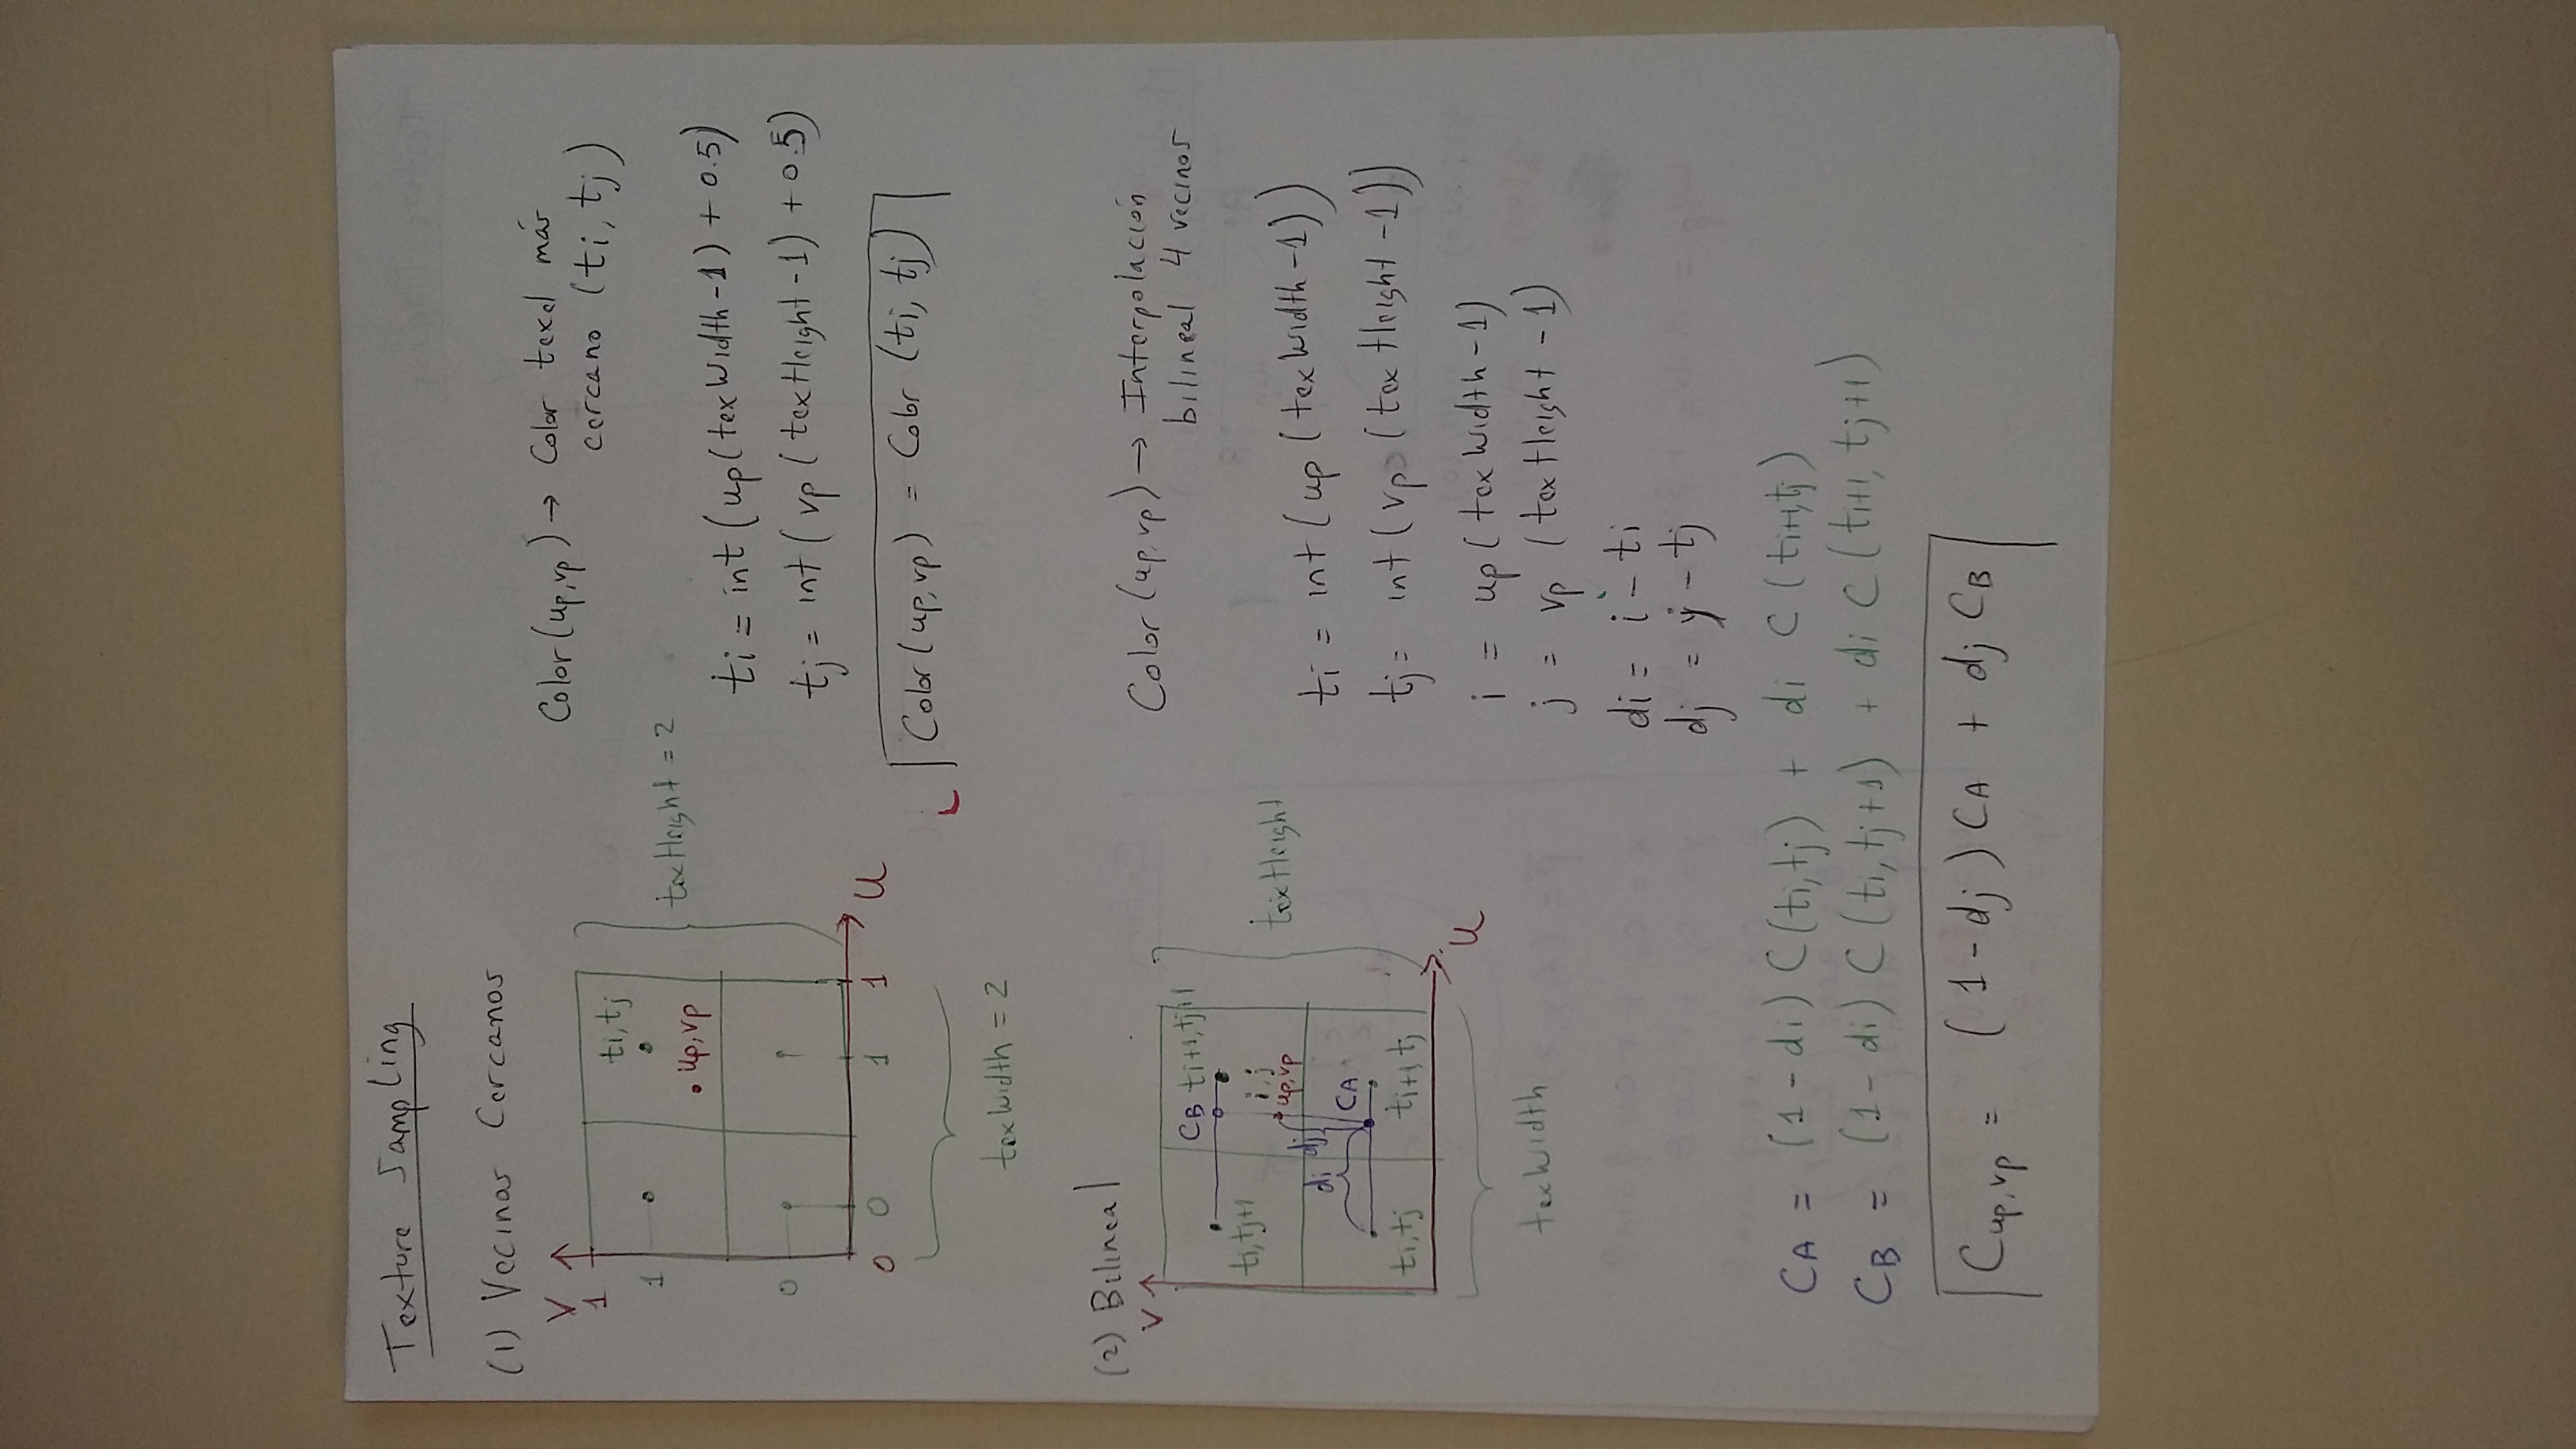 Texture Sampling
(1) Vecinos Cercanos
V
1
1
0
0
0
1
1
U
ti, tj
up, vp
texHeight = 2
texWidth = 2
Color(up, vp) → Color texel más
cercano (ti, tj)
ti = int (up(texWidth-1) + 0.5)
tj = int (vp (texHeight-1) + 0.5)
Color (up, vp) = Color (ti, tj)
(2) Bilineal
V
ti, tj+1
CB
ti+1, tj+1
i, j
up, vp
di
dj
ti, tj
CA
ti+1, tj
U
texHeight
texWidth
Color (up, vp) → Interpolación
bilineal 4 vecinos
ti = int (up (texWidth-1))
tj = int (vp (texHeight-1))
i = up (texWidth-1)
j = vp (texHeight-1)
di = i - ti
dj = j - tj
CA = (1-di) C(ti, tj) + di C (ti+1, tj)
CB = (1-di) C (ti, tj+1) + di C (ti+1, tj+1)
Cup,vp = (1-dj) CA + dj CB